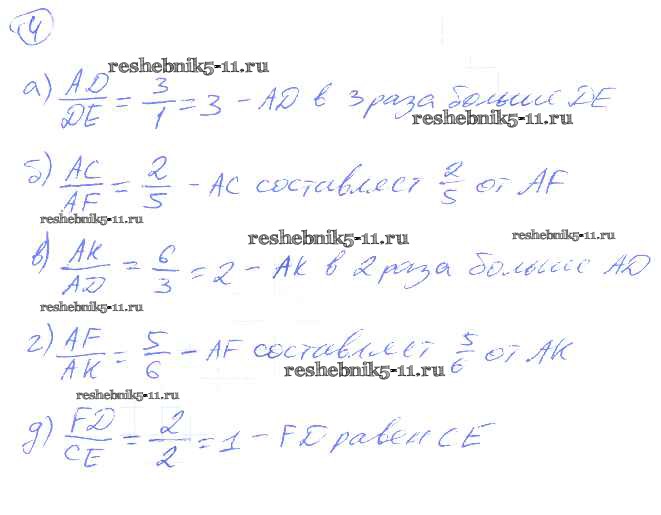 4
reshebnik5-11.ru
а) AD/DE = 3/1 = 3 - AD в 3 раза больше DE
reshebnik5-11.ru
б) AC/AF = 2/5 - AC составляет 2/5 от AF
reshebnik5-11.ru
reshebnik5-11.ru
reshebnik5-11.ru
в) AK/AD = 6/3 = 2 - AK в 2 раза больше AD
reshebnik5-11.ru
г) AF/AK = 5/6 - AF составляет 5/6 от AK
reshebnik5-11.ru
reshebnik5-11.ru
д) FD/CE = 2/2 = 1 - FD равен CE